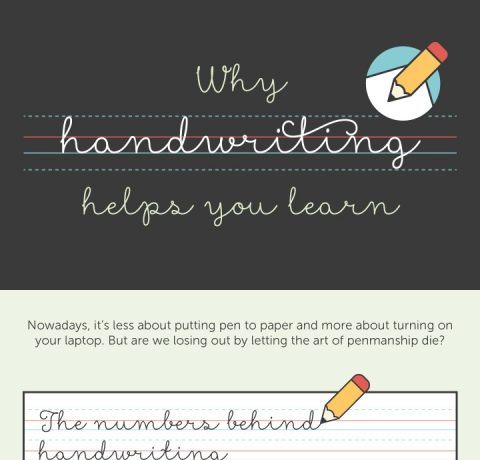 Why
handwriting
helps you learn
Nowadays, it's less about putting pen to paper and more about turning on
your laptop. But are we losing out by letting the art of penmanship die?
The numbers behind
handwriting